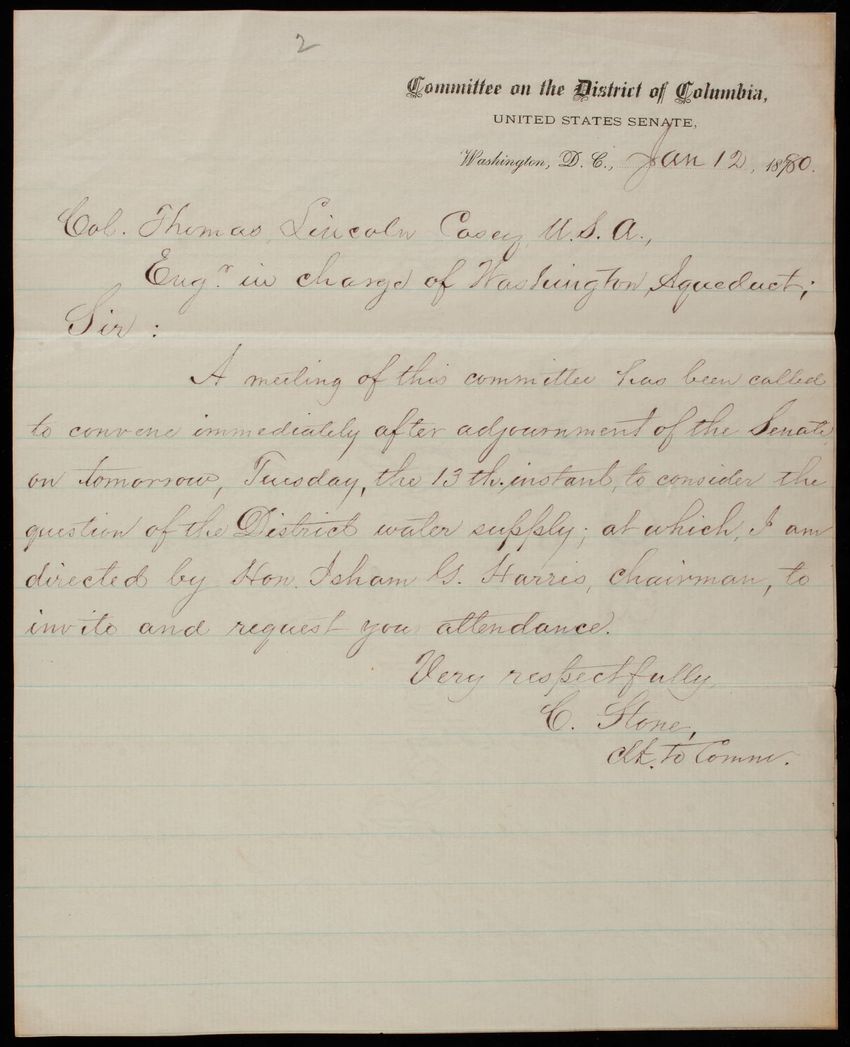 2
Committee on the District of Columbia,
UNITED STATES SENATE,
Washington, D. C., Jan 12, 1880.
Col. Thomas Lincoln Casey, U.S.A.,
Engr. in charge of Washington Aqueduct;
Sir:
A meeting of this committee has been called
to convene immediately after adjournment of the Senate
on tomorrow, Tuesday, the 13th. instant, to consider the
question of the District water supply; at which, I am
directed by Hon. Isham G. Harris, chairman, to
invite and request you attendance.
Very respectfully,
C. Stone,
Clk. to Comm.